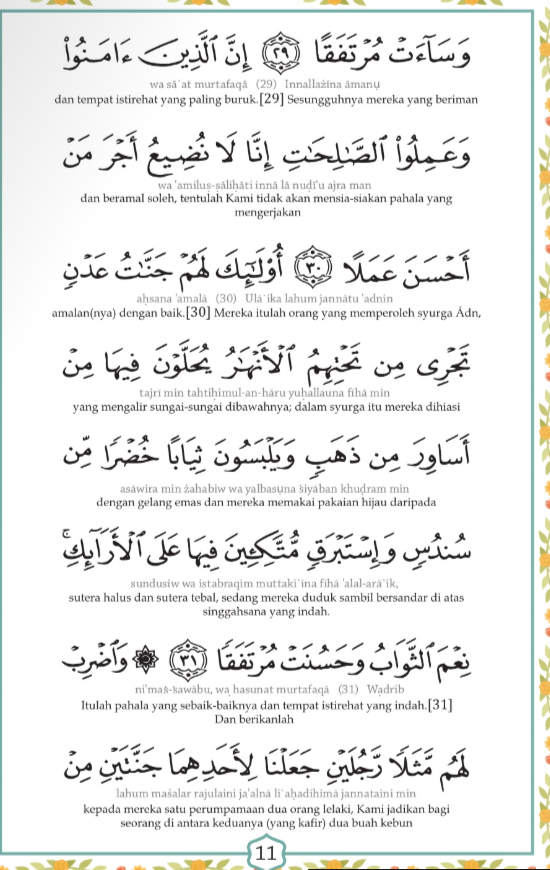 وَسَآءَتْ مُرْتَفَقًا ﴿٢٩﴾ إِنَّ ٱلَّذِينَ ءَامَنُوا۟
wa sā`at murtafaqā (29) Innallażīna āmanụ
dan tempat istirehat yang paling buruk.[29] Sesungguhnya mereka yang beriman
وَعَمِلُوا۟ ٱلصَّٰلِحَٰتِ إِنَّا لَا نُضِيعُ أَجْرَ مَنْ
wa 'amiluṣ-ṣāliḥāti innā lā nuḍī'u ajra man
dan beramal soleh, tentulah Kami tidak akan mensia-siakan pahala yang
mengerjakan
أَحْسَنَ عَمَلًا ﴿٣٠﴾ أُو۟لَٰٓئِكَ لَهُمْ جَنَّٰتُ عَدْنٍ
aḥsana 'amalā (30) Ulā`ika lahum jannātu 'adnin
amalan(nya) dengan baik.[30] Mereka itulah orang yang memperoleh syurga Ádn,
تَجْرِى مِن تَحْتِهِمُ ٱلْأَنْهَٰرُ يُحَلَّوْنَ فِيهَا مِنْ
tajrī min taḥtihimul-an-hāru yuḥallauna fīhā min
yang mengalir sungai-sungai dibawahnya; dalam syurga itu mereka dihiasi
أَسَاوِرَ مِن ذَهَبٍ وَيَلْبَسُونَ ثِيَابًا خُضْرًا مِّن
asāwira min żahabiw wa yalbasụna ṡiyāban khuḍram min
dengan gelang emas dan mereka memakai pakaian hijau daripada
سُندُسٍ وَإِسْتَبْرَقٍ مُّتَّكِـِٔينَ فِيهَا عَلَى ٱلْأَرَآئِكِ ۚ
sundusiw wa istabraqim muttaki`īna fīhā 'alal-arā`ik,
sutera halus dan sutera tebal, sedang mereka duduk sambil bersandar di atas
singgahsana yang indah.
نِعْمَ ٱلثَّوَابُ وَحَسُنَتْ مُرْتَفَقًا ﴿٣١﴾ ۞ وَٱضْرِبْ
ni'maṡ-ṡawābu, wa ḥasunat murtafaqā (31) Waḍrib
Itulah pahala yang sebaik-baiknya dan tempat istirehat yang indah.[31]
Dan berikanlah
لَهُم مَّثَلًا رَّجُلَيْنِ جَعَلْنَا لِأَحَدِهِمَا جَنَّتَيْنِ مِنْ
lahum maṡalar rajulaini ja'alnā li`aḥadihimā jannataini min
kepada mereka satu perumpamaan dua orang lelaki, Kami jadikan bagi
seorang di antara keduanya (yang kafir) dua buah kebun
11